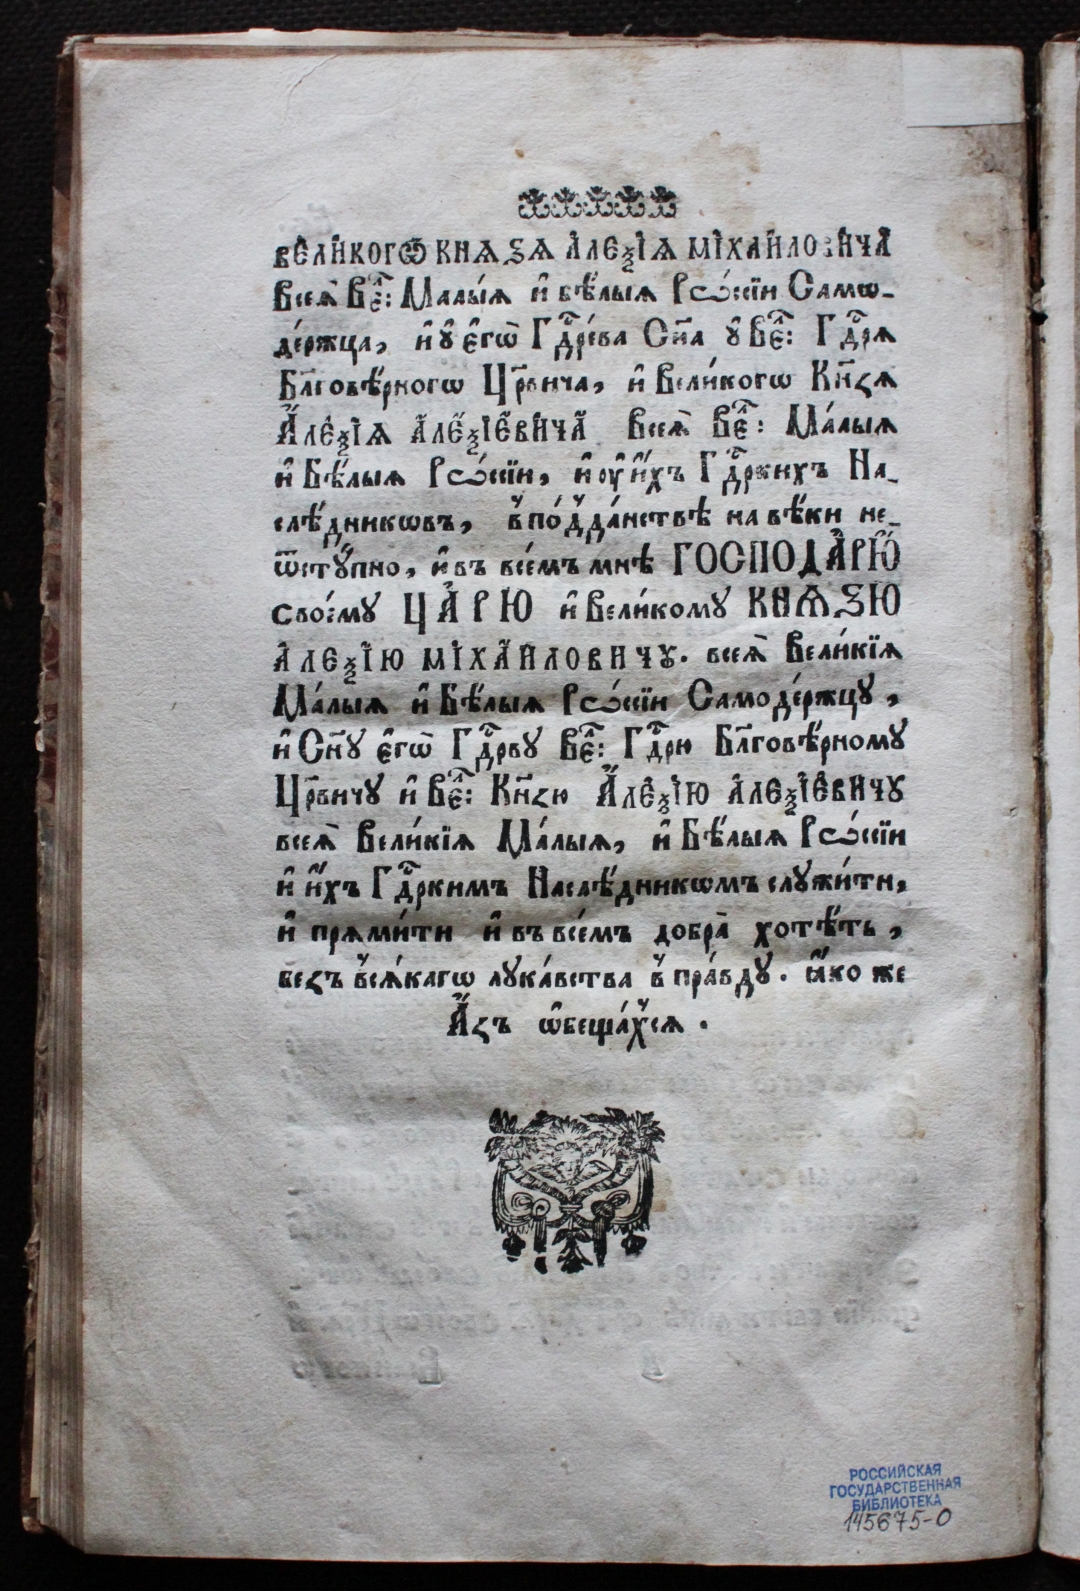 вели́когѡ кнѧѕѧ а҆леѯі́ѧ мїха́иловича
Всеѧ̀ Ве҃ли: Ма́лыѧ и҆ бѣ́лыѧ Рѡссі́и Самѡ-
де́ржца, и҆ ꙋ҆ є҆гѡ̀ Гд҃ре́ва Сн҃а ꙋ҆ Ве҃л: Гд҃рѧ
Бл҃говѣ́рногѡ Цр҃вича, и҆ Вели́когѡ Кн҃зѧ
А҆леѯі́ѧ а҆леѯі́евича Всеѧ̀ Ве҃л: Ма́лыѧ
и҆ Бѣ́лыѧ Рѡссі́и, и҆ ᲂу҆ и҆́хъ Гд҃ркихъ На-
слѣ́дникѡвъ, в̾ по́д̾да́нствѣ на вѣ́ки не-
ѿстꙋ́пно, и҆ въ все́мъ мнѣ ГОСПОДА́РЮ
своемꙋ ЦА҆РЮ̀ и҆ Вели́комꙋ КНѦЅЮ
А҆леѯі́ю мїха́иловичꙋ. всеѧ̀ Вели́кїѧ
Ма́лыѧ и҆ Бѣ́лыѧ Рѡссі́и Самоде́ржцꙋ,
и҆ Сн҃ꙋ є҆гѡ̀ Гд҃рвꙋ Ве҃л: Гд҃рю Бл҃говѣ́рномꙋ
Цр҃вичꙋ и҆ Ве҃л: Кн҃зю А҆леѯі́ю а҆леѯі́евичꙋ
всеѧ̀ Вели́кїѧ Ма́лыѧ, и҆ Бѣ́лыѧ Рѡссі́и
и҆ и҆́хъ Гд҃ркимъ Наслѣ́дникѡмъ слꙋжи́ти,
и҆ прѧми́ти и҆ въ все́мъ добра̀ хотѣ́ть,
безъ в̾сѧ́кагѡ лꙋка́вства в̾ пра́вдꙋ. ꙗ҆́ко же
А҆́зъ ѡ҆беща́х̾сѧ.
РОССИЙСКАЯ
ГОСУДАРСТВЕННАЯ
БИБЛИОТЕКА
145675-О